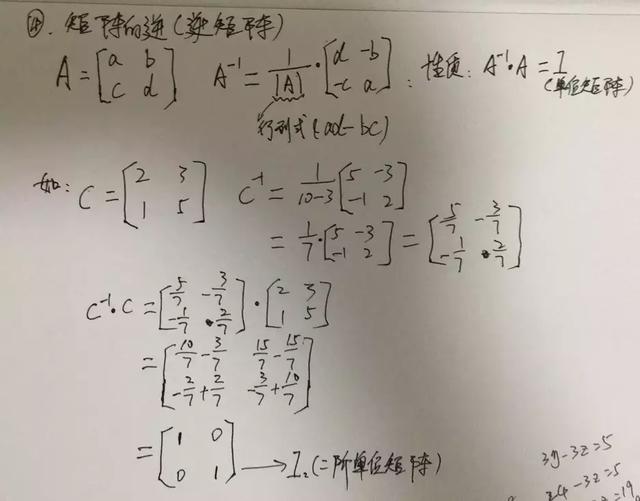 ④. 矩阵的逆(逆矩阵)
A = [a b; c d] A⁻¹ = 1/|A| · [d -b; -c a] ; 性质: A⁻¹·A = I
(单位矩阵)
行列式(ad-bc)
如: C = [2 3; 1 5] C⁻¹ = 1/(10-3) [5 -3; -1 2]
= 1/7 · [5 -3; -1 2] = [5/7 -3/7; -1/7 2/7]
C⁻¹·C = [5/7 -3/7; -1/7 2/7] · [2 3; 1 5]
= [10/7-3/7 15/7-15/7; -2/7+2/7 -3/7+10/7]
= [1 0; 0 1] → I₂(二阶单位矩阵)
3y-3z=5
-3z=5
=19